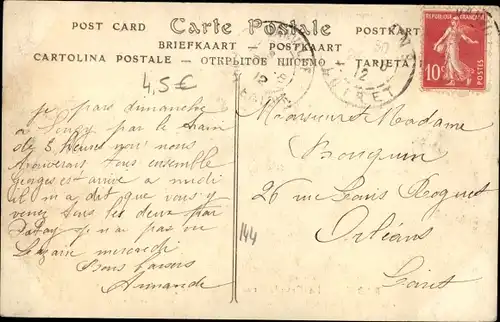 POST CARD Carte Postale POSTKART
BRIEFKAART - POSTKAART
CARTOLINA POSTALE - ОТКРЫТОЕ ПИСЬМО - TARJETA
RÉPUBLIQUE FRANÇAISE
10c
POSTES
12
12
LOIRET
4,5€
je pars dimanche
à par le train
de 8 heures nous nous
trouverons tous ensemble
est arrivé à midi
il m a dit que vous y
venez tous les deux par
Patay je n ai pas vu
mercredi
Bons baisers
Armande
144
Monsieur et Madame
26 rue Louis Roguet
Orléans
Loiret